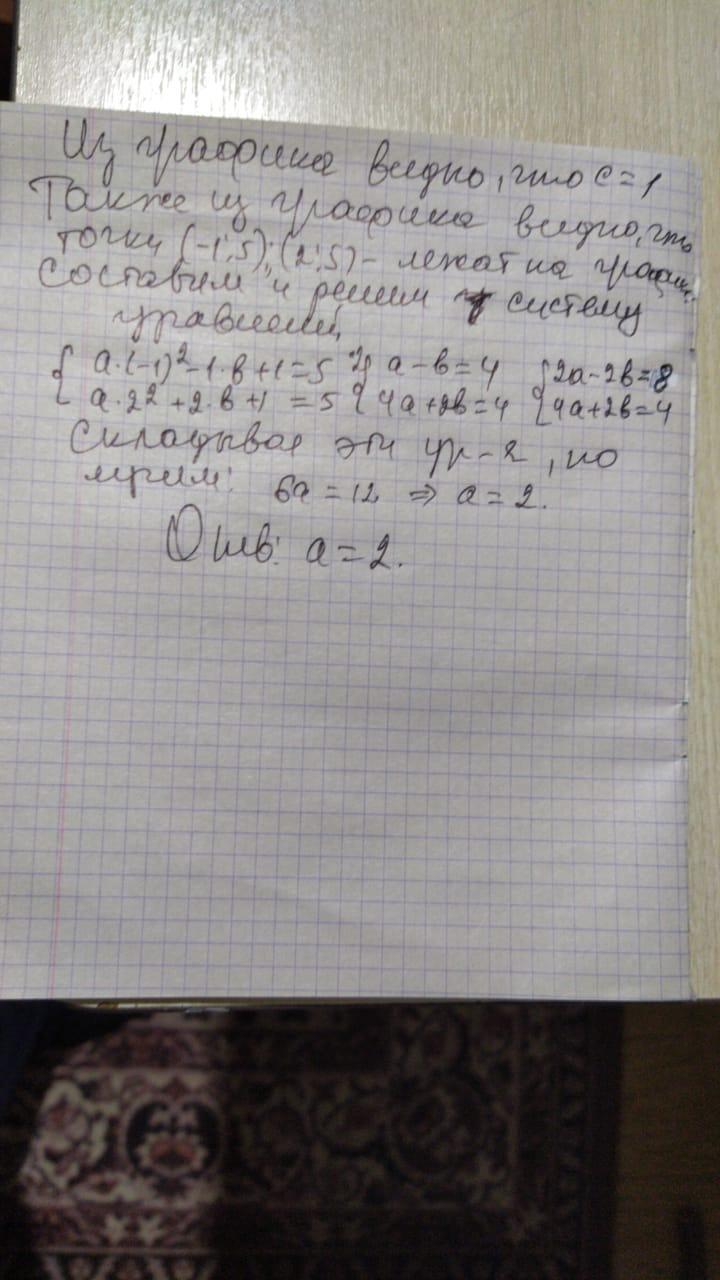 Из графика видно, что c = 1
Также из графика видно, что
точки (-1; 5); (2; 5) - лежат на
Составим и решим систему
уравнений
{ a·(-1)² - 1·в + 1 = 5 { a - в = 4 { 2a - 2в = 8
{ a·2² + 2·в + 1 = 5 { 4a + 2в = 4 { 4a + 2в = 4
Складывая эти ур-я, по
лучим: 6a = 12 ⇒ a = 2.
Отв: a = 2.